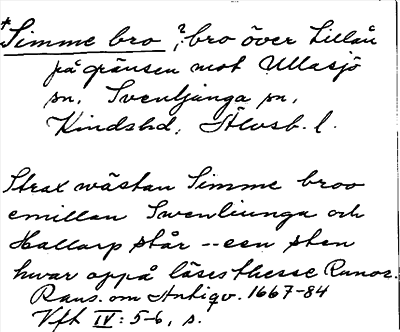 *Simme bro, ?, bro över Lillån
på gränsen mot Ullasjö
sn, Svenljunga sn,
Kinds hd, Älvsb. l.
Strax wästan Simme broo
emillan Swenliunga och
Hallarp står -- een sten
hwar oppå läses thesse Runor.
Rans. om Antiqv. 1667-84
Vft IV: 5-6, s.